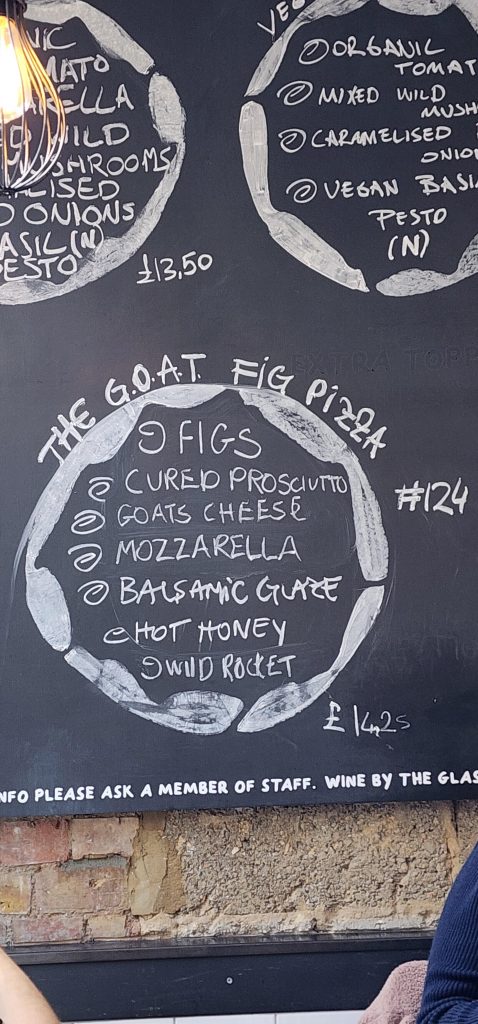 ORGANIC
TOMAT
MIXED WILD
MUSH
CARAMELISED
ONIO
VEGAN BASI
PESTO
(N)
WILD
MUSHROOMS
ONIONS
BASIL (N)
PESTO
£13,50
THE G.O.A.T. FIG PIZZA
FIGS
CURED PROSCIUTTO
GOATS CHEESE
MOZZARELLA
BALSAMIC GLAZE
HOT HONEY
WILD ROCKET
#124
£14,25
NFO PLEASE ASK A MEMBER OF STAFF. WINE BY THE GLAS